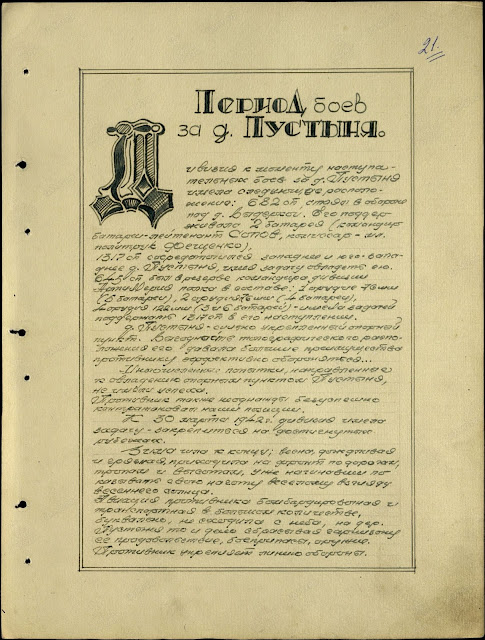 21.
Период боев
за д. Пустыня.
Дивизия к моменту наступа-
тельных боев за д. Пустыня
имела следующее располо-
жение: 682 сп стрял в обороне
под д. Его поддер-
живало 2 батарея (командир
батареи-лейтенант комиссар - мл.
политрук Фещенко),
1317 сп сосредоточился западнее и юго-запа-
днее д. Пустыня, имея задачу овладеть ею.
644 сп был в резерве командира дивизии.
Артиллерия полка в составе: 1 орудие 76мм
(5 батареи), 2 орудия 76мм (4 батареи),
4 орудия 122мм (3 и 6 батареи) - имела задачей
поддержать 1317 сп в его наступлении.
д. Пустыня - сильно укрепленный опорный
пункт. Выгодность топографического распо-
ложения его давала большие преимущества
противнику эффективно обороняться...
Многочисленные попытки, направленные
к овладению опорным пунктом Пустыня,
не имели успеха.
Противник также неоднажды безуспешно
контратаковал наши позиции.
К 30 марта 1942г. дивизия имела
задачу - закрепиться на достигнутых
рубежах.
Зима шла к концу; весна, дождливая
и грязная, приходила на фронт по дорогам,
тропам и высотам, уже начинавшим по-
казывать свою наготу веселому взгляду
весеннего солнца.
Авиация противника бомбардировочная и
транспортная в большом количестве,
буквально, не сходила с неба, на дер.
Пустыня то и дело сбрасывая гарнизону
её продовольствие, боеприпасы, оружие.
Противник укреплял линию обороны.